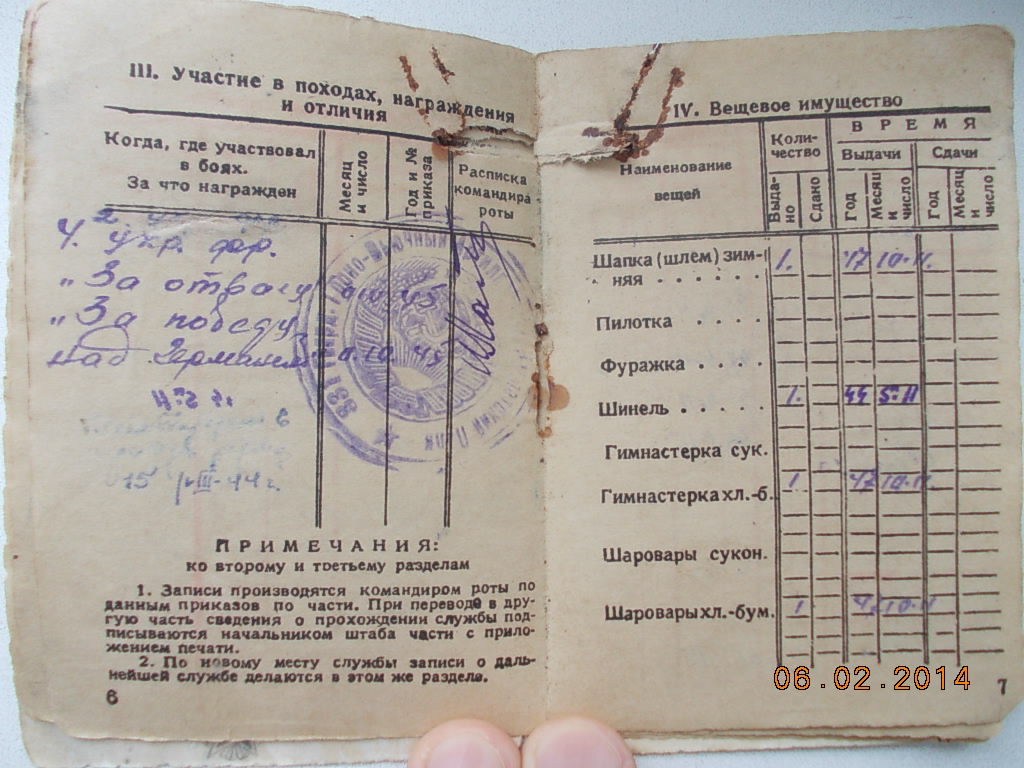 III. Участие в походах, награждения
и отличия
Когда, где участвовал
в боях.
За что награжден
Месяц
и число
Год и №
приказа
Расписка
командира
роты
4. укр. фр.
„За отвагу
45
„За победу
над Германией 45
15 III-44 г.
ПРИМЕЧАНИЯ:
ко второму и третьему разделам
1. Записи производятся командиром роты по
данным приказов по части. При переводе в дру-
гую часть сведения о прохождении службы под-
писываются начальником штаба части с прило-
жением печати.
2. По новому месту службы записи о даль-
нейшей службе делаются в этом же разделе.
6
IV. Вещевое имущество
Наименование
вещей
Коли-
чество
ВРЕМЯ
Выдачи
Сдачи
Выда-
но
Сдано
Год
Месяц
и
число
Год
Месяц
и
число
Шапка (шлем) зим- 1. 47 10-II.
няя . . . . .
Пилотка . . . .
Фуражка . . . .
Шинель . . . . . 1. 44 5-II
Гимнастерка сук.
Гимнастерка хл.-б. 1 47 10-II.
Шаровары сукон.
Шаровары хл.-бум. 1 47 10-II
06.02.2014
7